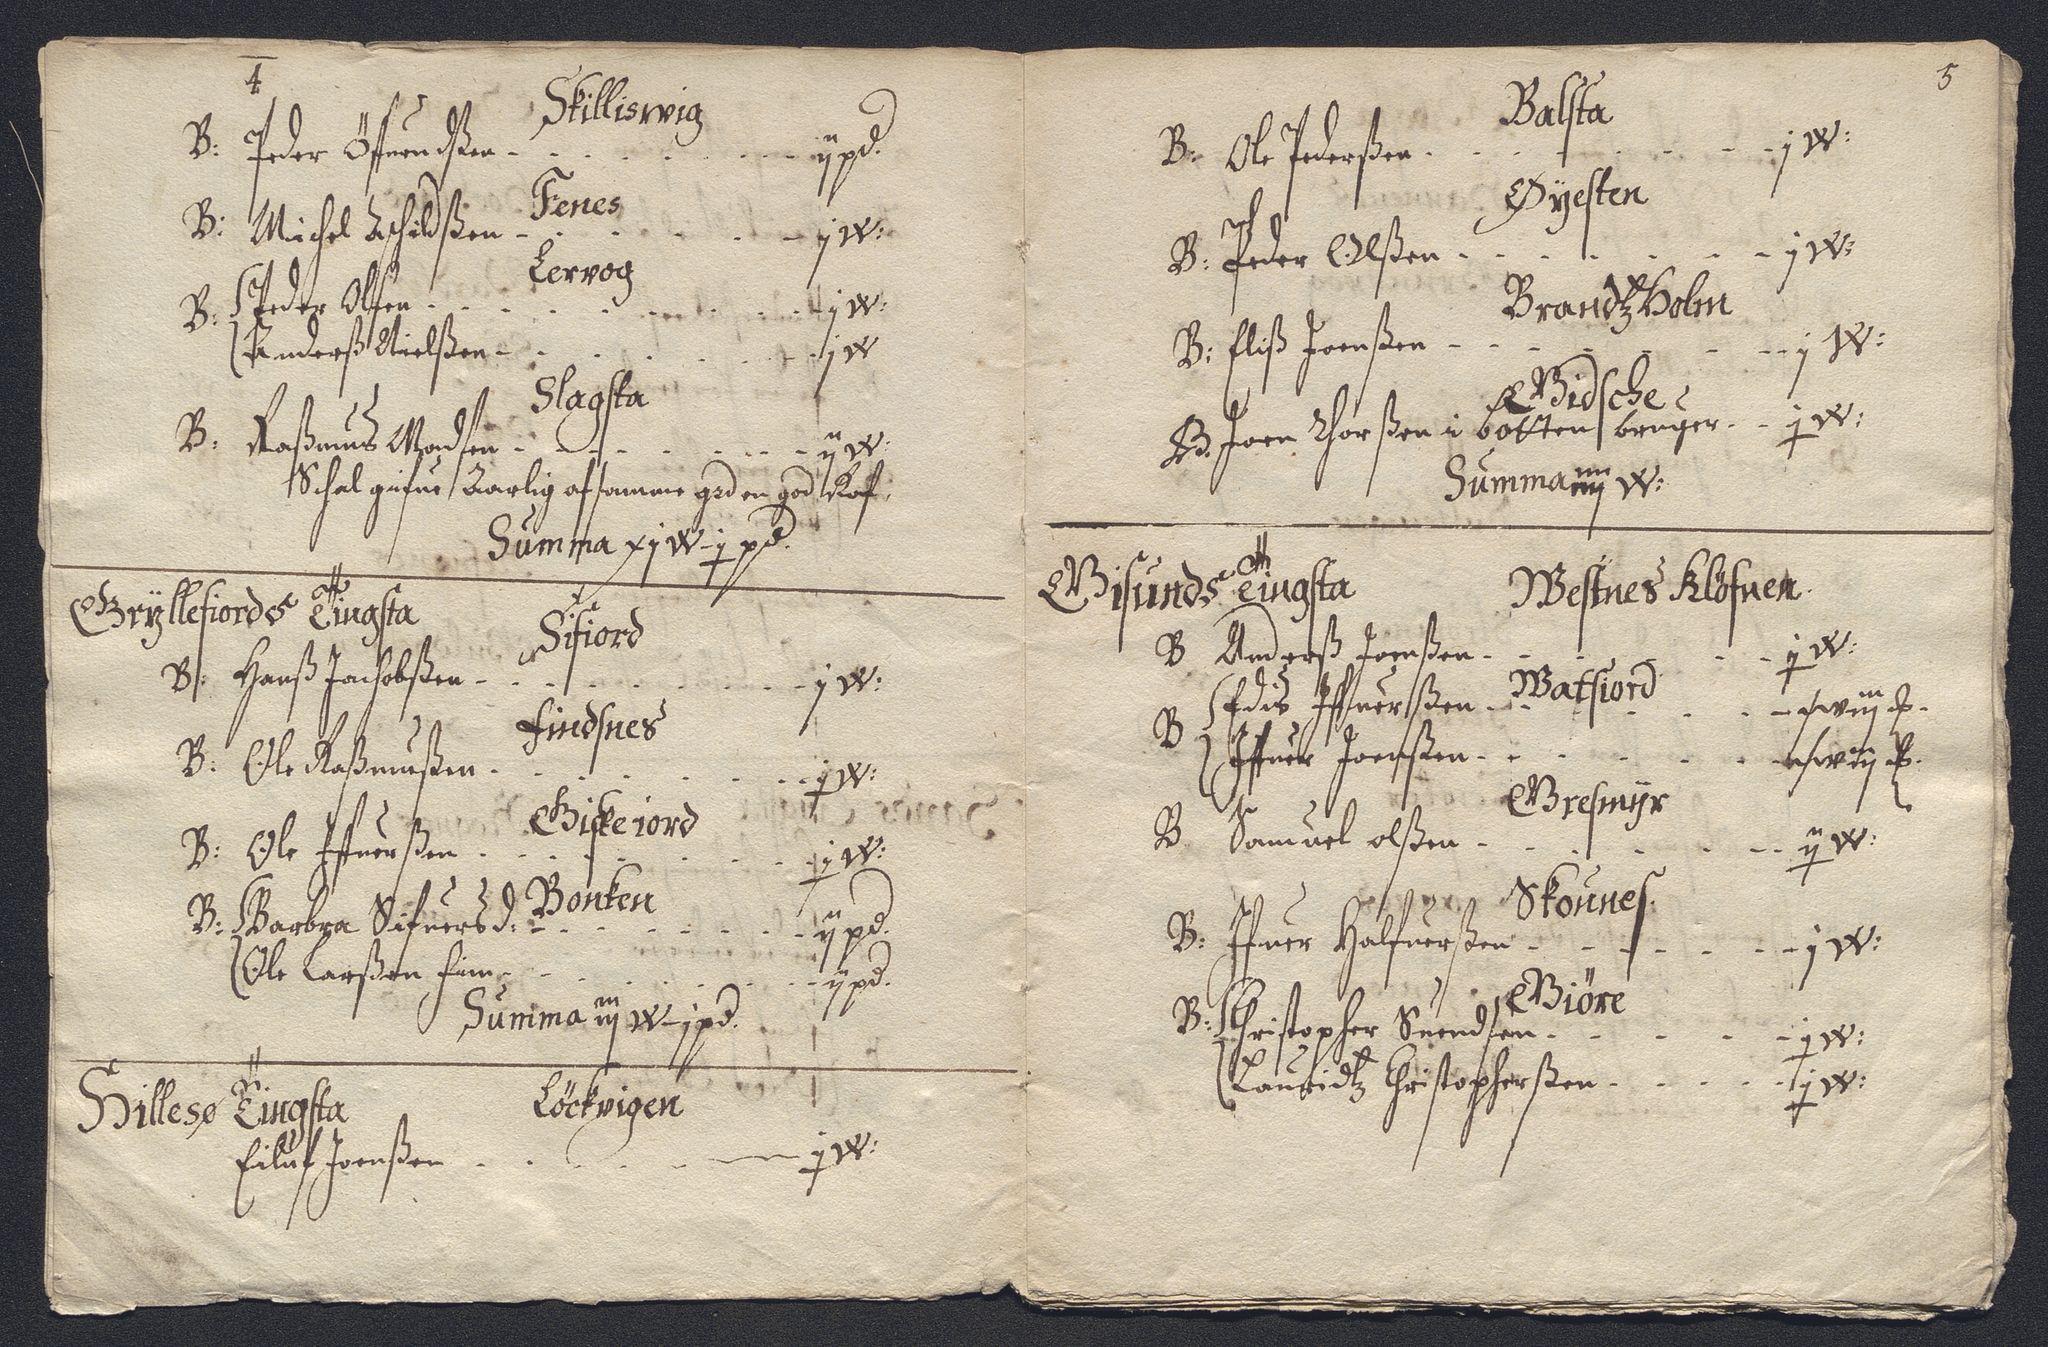 4
Skilliswig
B: Peder Öffuendßen - - - - - - - ij pd.
Fenes
B: Michel Eschildßen - - - - - - j W:
Lervog
B: Peder Olsen - - - - - - - - j W:
Anderß Nielßen - - - - - - - j W
Slagsta
B: Raßmus Madsen - - - - - - - ij W:
Schal gifue Aarlig af samme grd en god Kaf.
Summa xj W - j pd.
Gryllefiords Tingsta
Sifiord
B: Hanß Jachobßen - - - - - - - j W:
Findsnes
B: Ole Raßmußen - - - - - - - j W:
Gifteiord
B: Ole Iffuerßen - - - - - - - j W:
Bonken
B: Barbra Sifuersd: - - - - - - ij pd.
Ole Larßen fim - - - - - - - ij pd.
Summa iiij W - j pd.
Hillesø Tingsta
Löckvigen
Eiluf Joenßen - - - - - j W:
5
Balsta
B: Ole Pederßen - - - - - - - j W:
Øyesten
B: Peder Olßen - - - - - - - j W:
Brandtz Holm
B: Eliß Joenßen - - - - - - - j W:
Gidsche
B. Joen Thorßen i botten bruger - - j W:
Summa W:
Gisunds Tingsta
Westnes Klöfuen
B Anderß Joenßen - - - - - - j W:
Watfiord
B Edis Iffuerßen - - - - - -
Iffuer Joenßen - - - - - -
Gresmyr
B Samuel olßen - - - - - - - ij W:
Skounes
B: Ifuer Halfuerßen - - - - - - j W:
Giöre
B: Christopher Suendsen - - - - - j W:
Lauridtz Christopherßen - - - - - j W: